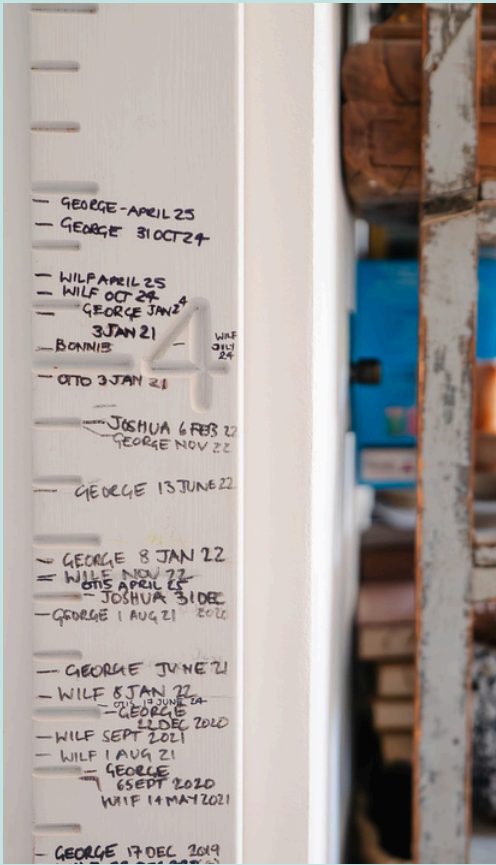 GEORGE-APRIL 25
GEORGE 31 OCT 24
WILF APRIL 25
WILF OCT 24
GEORGE JAN 24
3 JAN 21
WILF
JULY
24
BONNIE
4
OTTO 3 JAN 21
JOSHUA 6 FEB 22
GEORGE NOV 22
GEORGE 13 JUNE 22
GEORGE 8 JAN 22
WILF NOV 22
OTIS APRIL 25
JOSHUA 31 DEC
2020
GEORGE 1 AUG 21
GEORGE JUNE 21
WILF 8 JAN 22
OTIS 17 JUNE 24
GEORGE
22 DEC 2020
WILF SEPT 2021
WILF 1 AUG 21
GEORGE
6 SEPT 2020
WILF 14 MAY 2021
GEORGE 17 DEC 2019